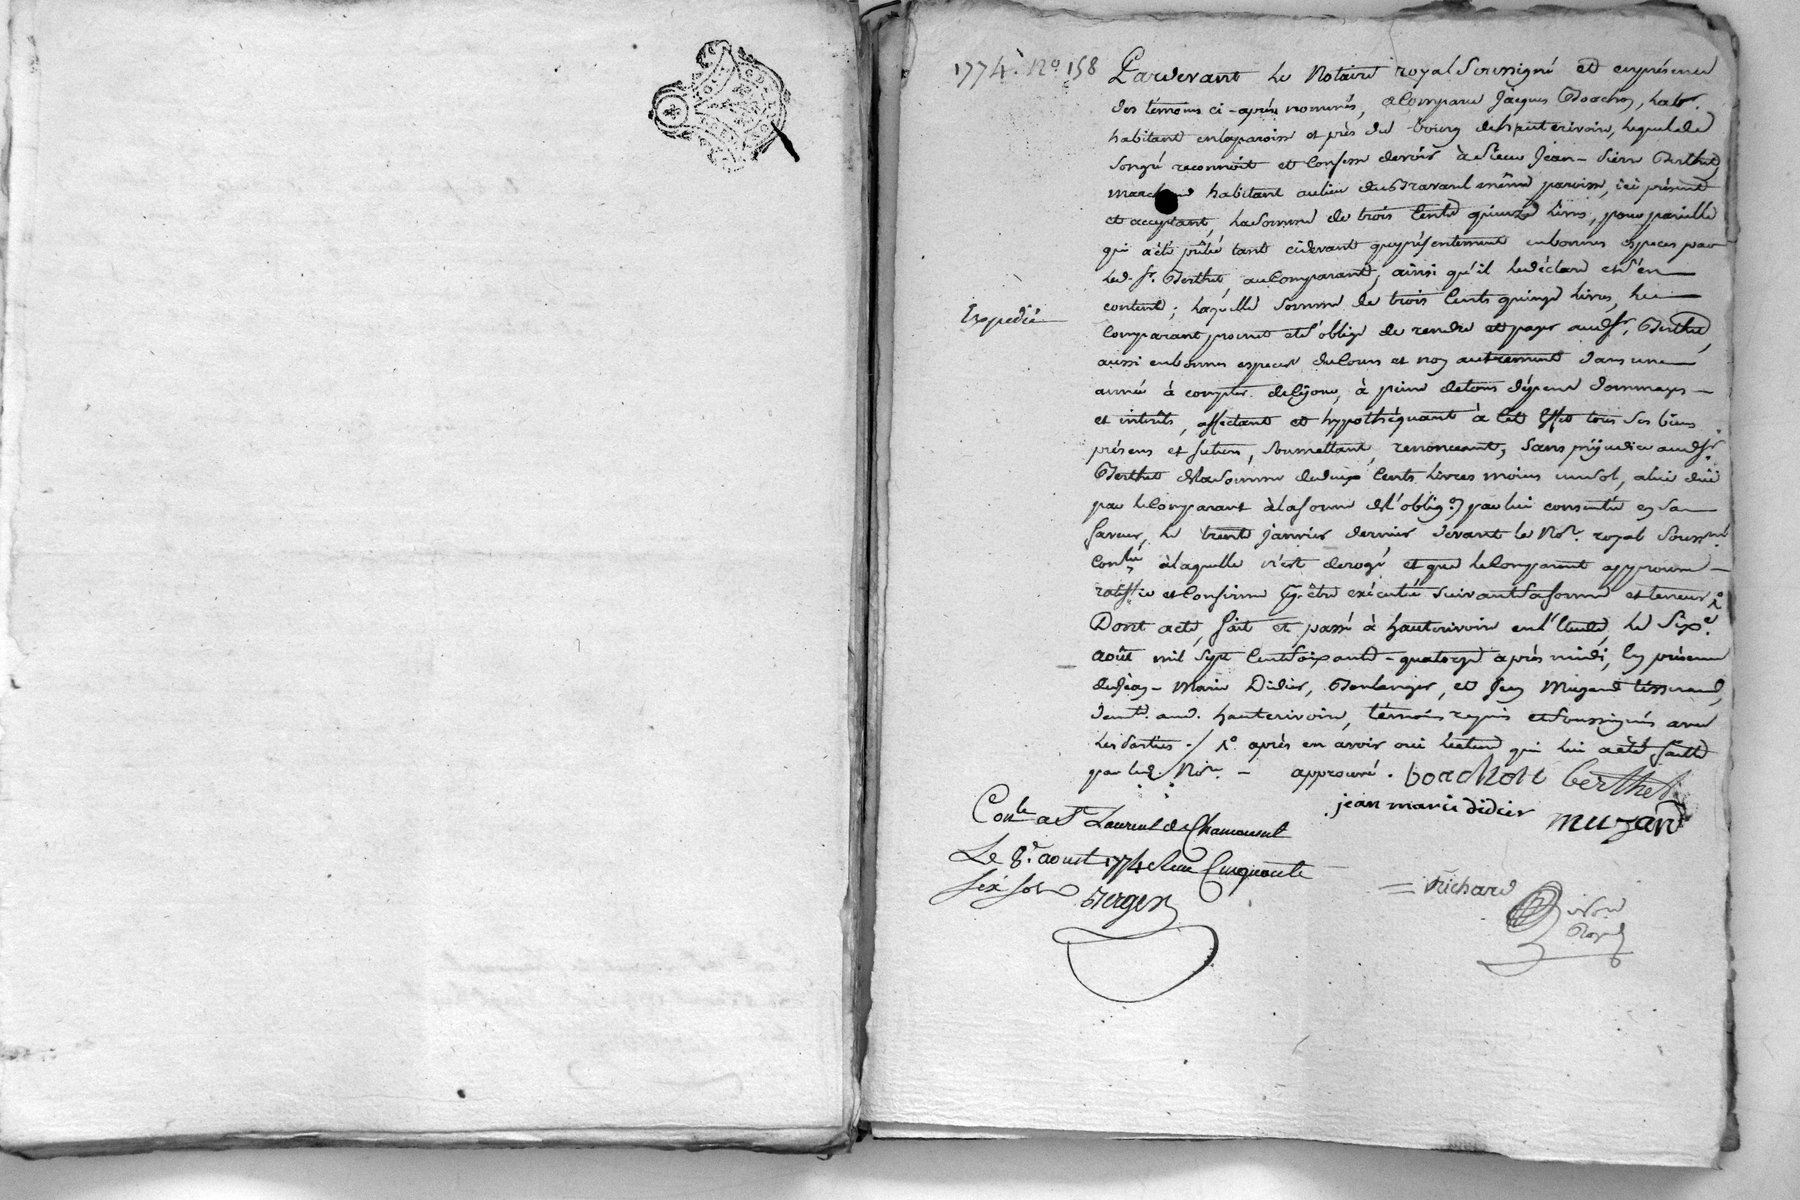 1774. No. 158
Pardevant le Notaire royal Soussigné et en présence
des témoins ci-après nommés, a Comparu Jacques Boachon, labr.
habitant en la paroisse et près du bourg de hauterivoire, lequel de
son gré reconnoit et Confesse devoir à Sieur Jean-Pierre Berthet
marchand habitant au lieu du même paroisse, ici présent
et acceptant, la Somme de trois Cents quinze livres, pour pareille
qui a été prêtée tant cidevant que présentement en bonnes especes par
led. Sr. Berthet, au Comparant, ainsi qu'il le déclare et s'en
contente; laquelle Somme de trois Cents quinze livres, le
Expedié
Comparant promet et s'oblige de rendre et payer audSr. Berthet,
aussi en bonnes especes du Cours et non autrement dans une
année à compter de ce jour, à peine de tous dépens dommages
et intérêts, affectant et hypothéquant à Cet Effet tous Ses biens
présens et futurs, Soumettant, renonceant, Sans préjudice audSr.
Berthet de la Somme de deux Cents livres moins un Sol, a lui düe
par le Comparant à la forme de l'oblig.on par lui consentie en Sa
faveur, le trente janvier dernier devant le Nore. royal Soussné.
Conlée à laquelle n'est derogé et que le Comparant approuve
ratiffie et Confirme pr. être exécutée Suivant Sa forme et teneur,
Dont acte, fait et passé à hauterivoire en l'Etude le Sixe.
août mil Sept Cent Soixante-quatorze après midi, En présence
de Jean-Marie Didier, Boulanger, et Jean Muzard tisserand,
demt. aud. hauterivoire, témoins requis et Soussignés avec
les Parties ./ après en avoir oui lecture qui lui a été faitte
par led. Nore. - approuvé. boachon berthet
jean marie didier muzard
Conlé a St Laurent de Chamousset
Le 8e. aoust 1774 Reçu Cinquante
six sols Berger
Richard
Nore
Royal